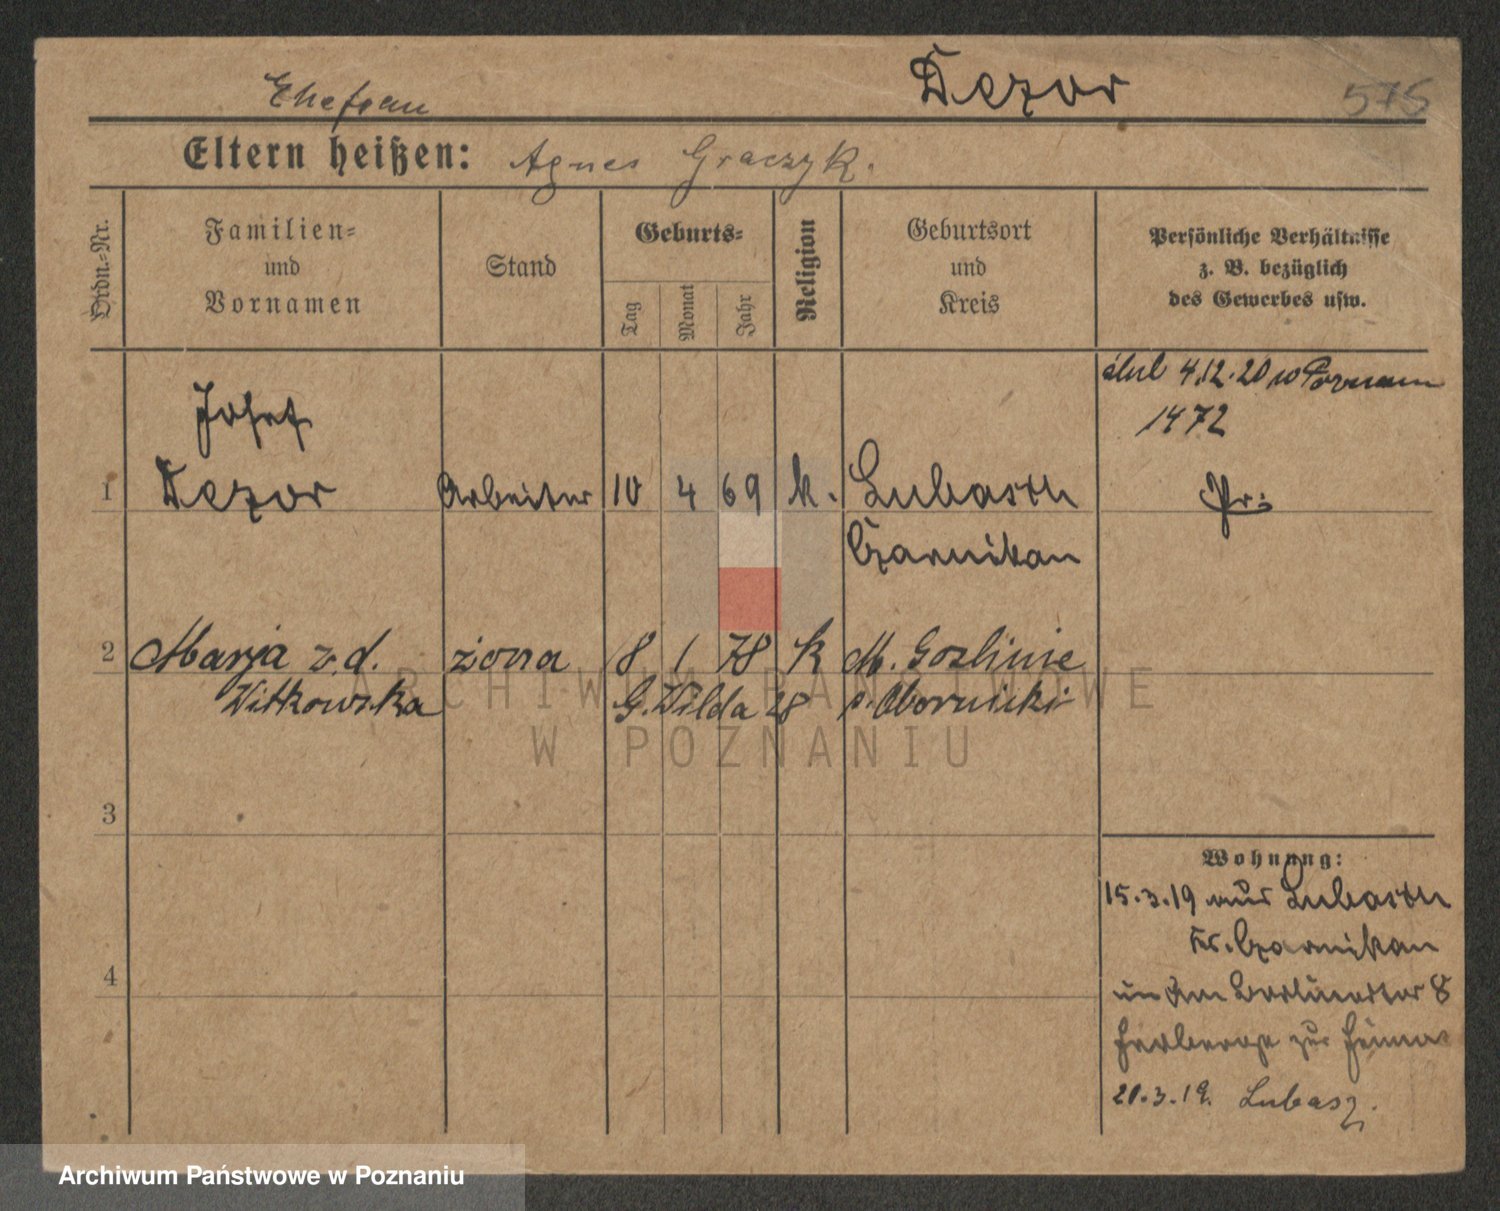 Ehefrau
Dezor
575
Eltern heißen: Agnes Graczyk.
Ordn.-Nr.
Familien-
und
Vornamen
Stand
Geburts-
Tag
Monat
Jahr
Religion
Geburtsort
und
Kreis
Persönliche Verhältnisse
z. B. bezüglich
des Gewerbes usw.
ślub 4.12.20 w Poznaniu
1472
1 Josef
Dezor Arbeiter 10 4 69 k. Lubasch
Czarnikau
Pr:
2 Marja z.d. żona 8 1 78 k M. Goslinie
Witkowska G. Wilda 28 p. Obornicki
3
4
Wohnung:
15.3.19 aus Lubasch
Kr. Czarnikau
in Am Berlinertor 8
Herberge zur Heimat
21.3.19. Lubasz.
ARCHIWUM PAŃSTWOWE
W POZNANIU
Archiwum Państwowe w Poznaniu